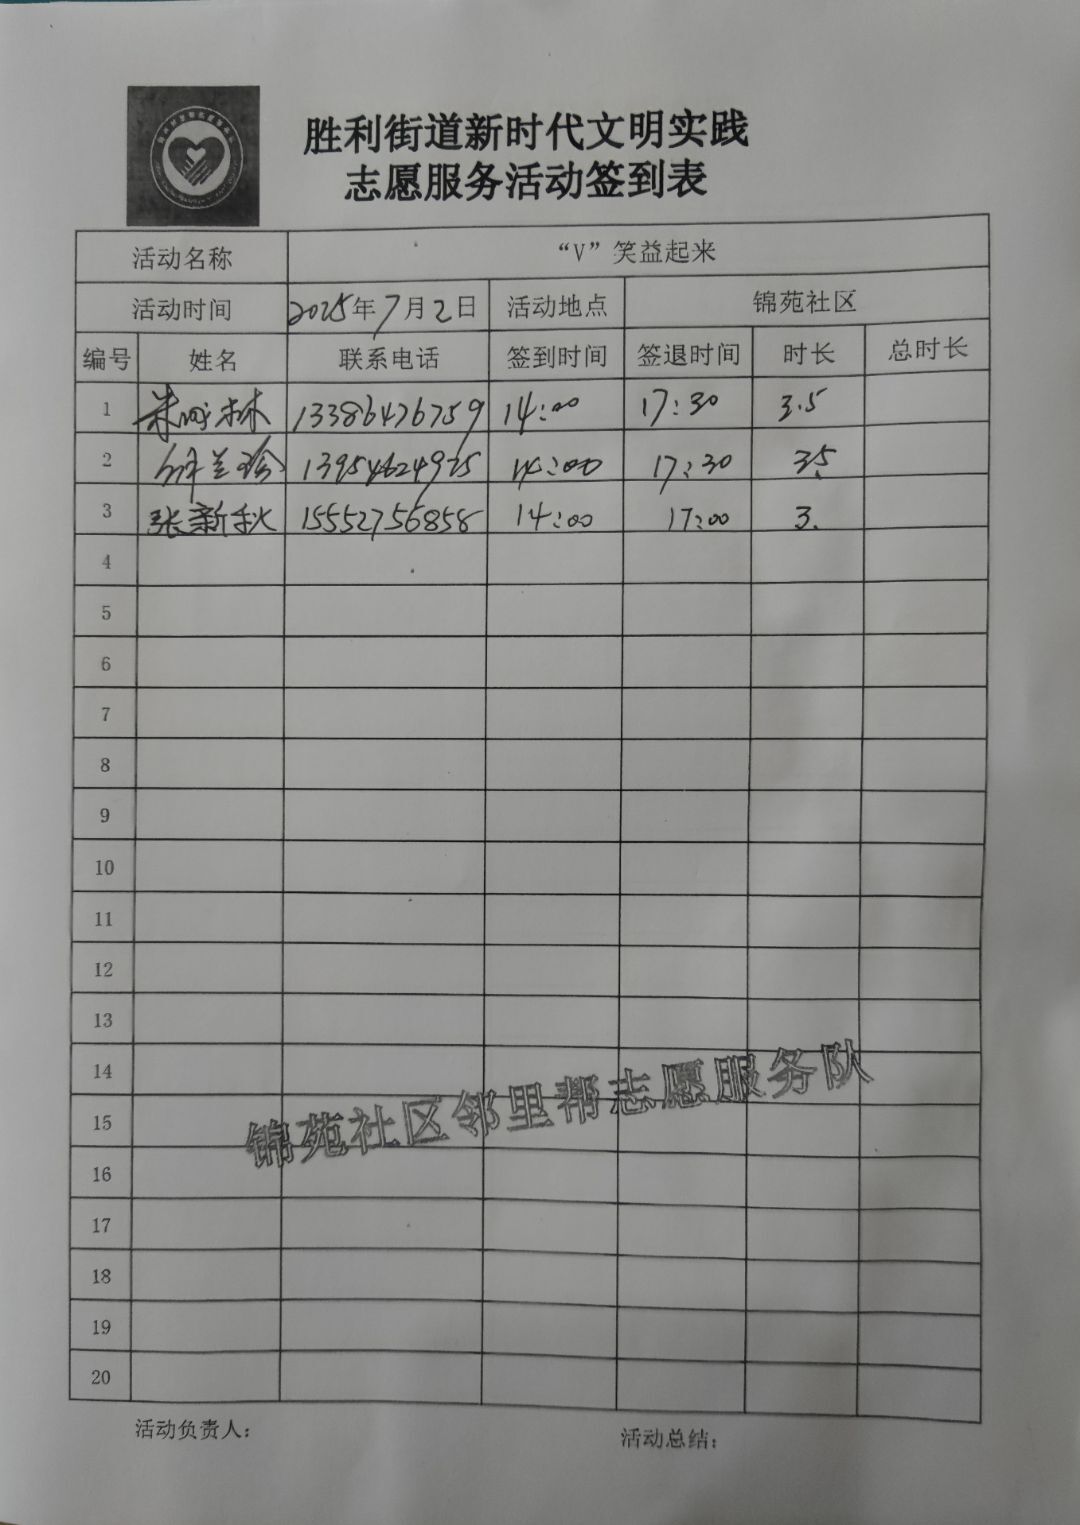 胜利街道新时代文明实践
志愿服务活动签到表
活动名称 “V”笑益起来
活动时间 2025年7月2日 活动地点 锦苑社区
编号 姓名 联系电话 签到时间 签退时间 时长 总时长
1 林 13386476759 14:00 17:30 3.5
2 兰 13954624975 14:00 17:30 3.5
3 张新秋 15552756858 14:00 17:00 3.
4
5
6
7
8
9
10
11
12
13
14
15
16
17
18
19
20
锦苑社区邻里帮志愿服务队
活动负责人:
活动总结: